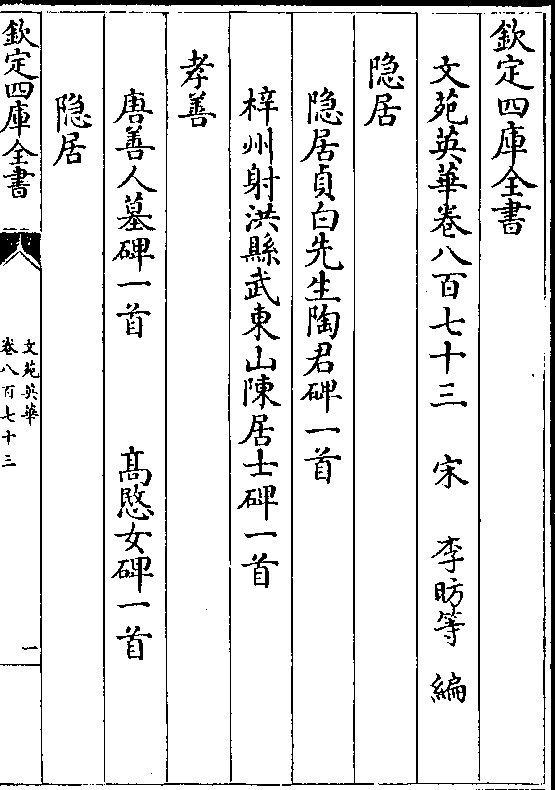 欽定四庫全書
文苑英華卷八百七十三 宋 李昉等 編
隐居
隐居貞白先生陶君碑一首
梓州射洪縣武東山陳居士碑一首
孝善
唐善人墓碑一首 髙愍女碑一首
隐居
欽定四庫全書
文苑英華
卷八百七十三
一